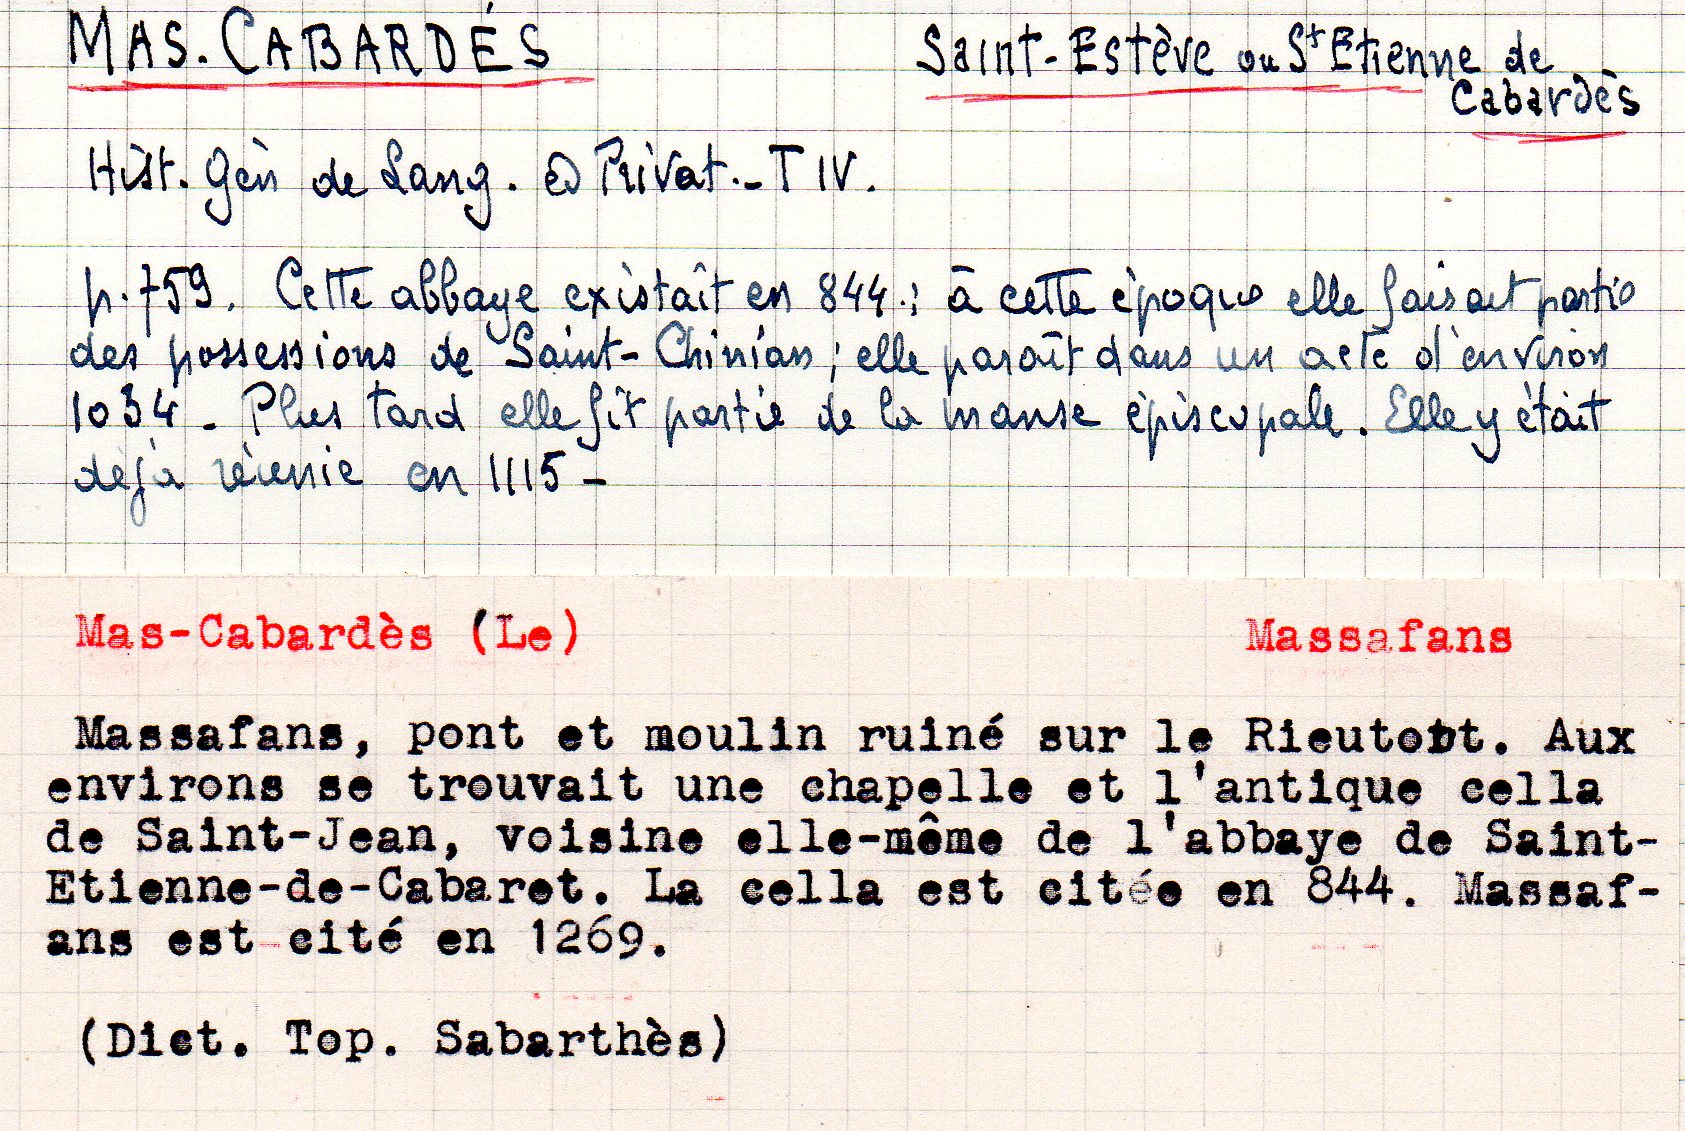 MAS. CABARDÉS
Saint-Estève ou St Etienne de
Cabardès
Hist. Gén de Lang. ED Privat.- T IV.
p. 759. Cette abbaye existait en 844.; à cette époque elle faisait partie
des possessions de Saint-Chinian; elle paraît dans un acte d'environ
1034 - Plus tard elle fit partie de la manse épiscopale. Elle y était
déjà réunie en 1115 -
Mas-Cabardès (Le)
Massafans
Massafans, pont et moulin ruiné sur le Rieutort. Aux
environs se trouvait une chapelle et l'antique cella
de Saint-Jean, voisine elle-même de l'abbaye de Saint-
Etienne-de-Cabaret. La cella est citée en 844. Massaf-
ans est cité en 1269.
(Dict. Top. Sabarthès)